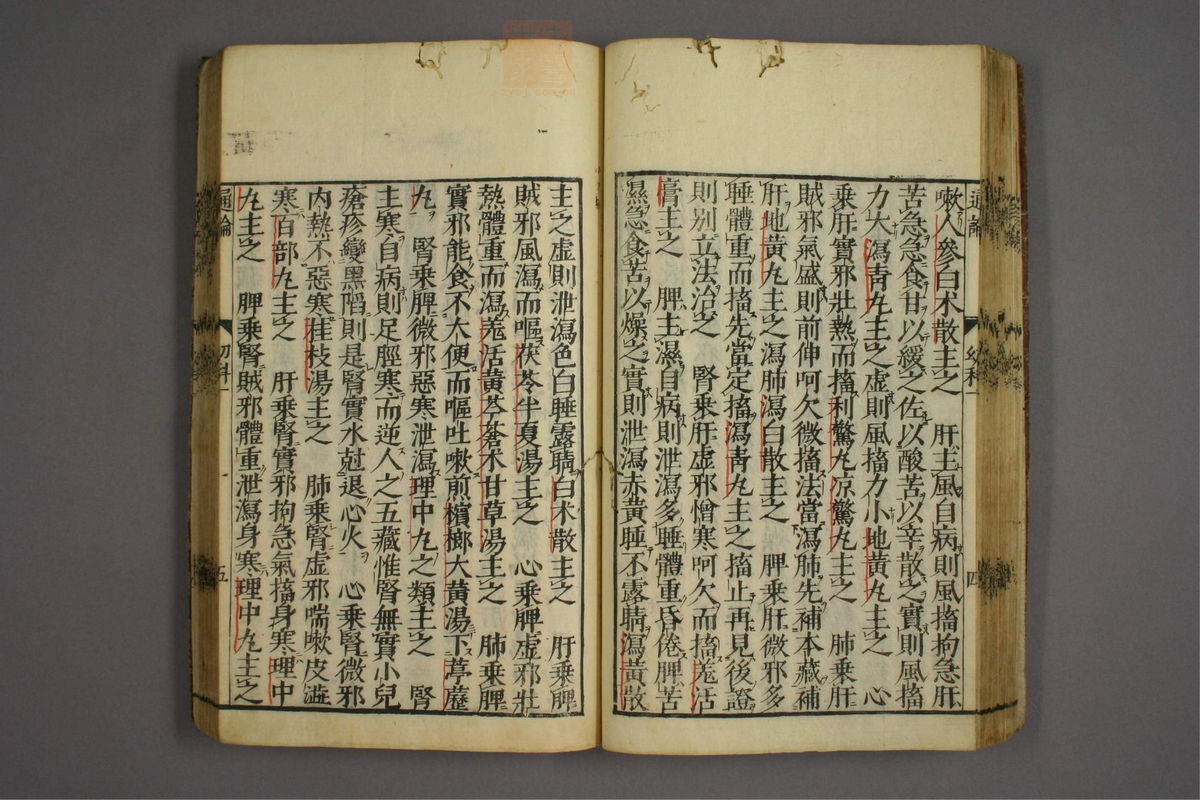 嗽人參白术散主之　肝主風自病則風搐拘急肝
苦急急食甘以緩之佐以酸苦以辛散之實則風搐
力大瀉青丸主之虛則風搐力小地黄丸主之　心
乘肝實邪壯熱而搐利驚丸凉驚丸主之　肺乘肝
賊邪氣盛則前伸呵欠微搐法當瀉肺先補本藏補
肝地黄丸主之瀉肺瀉白散主之　脾乘肝微邪多
睡體重而搐先當定搐瀉青丸主之搐止再見後證
則别立法治之　腎乘肝虛邪憎寒呵欠而搐羗活
膏主之　脾主濕自病則泄瀉多睡體重昏倦脾苦
濕急食苦以燥之實則泄瀉赤黄睡不露睛瀉黄散
通論　幼科一　四
主之虛則泄瀉色白睡露睛白术散主之　肝乘脾
賊邪風瀉而嘔茯苓半夏湯主之　心乘脾虛邪壯
熱體重而瀉羗活黄芩蒼术甘草湯主之　肺乘脾
實邪能食不大便而嘔吐嗽煎檳榔大黄湯下葶藶
丸　腎乘脾微邪惡寒泄瀉理中丸之類主之　腎
主寒自病則足脛寒而逆人之五藏惟腎無實小兒
瘡疹變黑陷則是腎實水尅退心火　心乘腎微邪
内熱不惡寒桂枝湯主之　肺乘腎虛邪喘嗽皮澁
寒百部丸主之　肝乘腎實邪拘急氣搐身寒理中
丸主之　脾乘腎賊邪體重泄瀉身寒理中丸主之
通論　幼科一　五